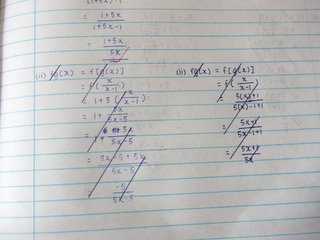 (1+5x)-1
= 1+5x
1+5x-1
= 1+5x
5x
(ii) fg(x) = f[g(x)]
= f(x/x-1)
= 1+5(x/x-1)
= 1+ 5x
5x-5
5x
5x-5
= 5x-5+5x
5x-5
-5
5x-5
(ii) fg(x) = f[g(x)]
= f(x/x-1)
= 5(x)+1
5(x)-1+1
= 5x+1
5x-1+1
= 5x+1
5x